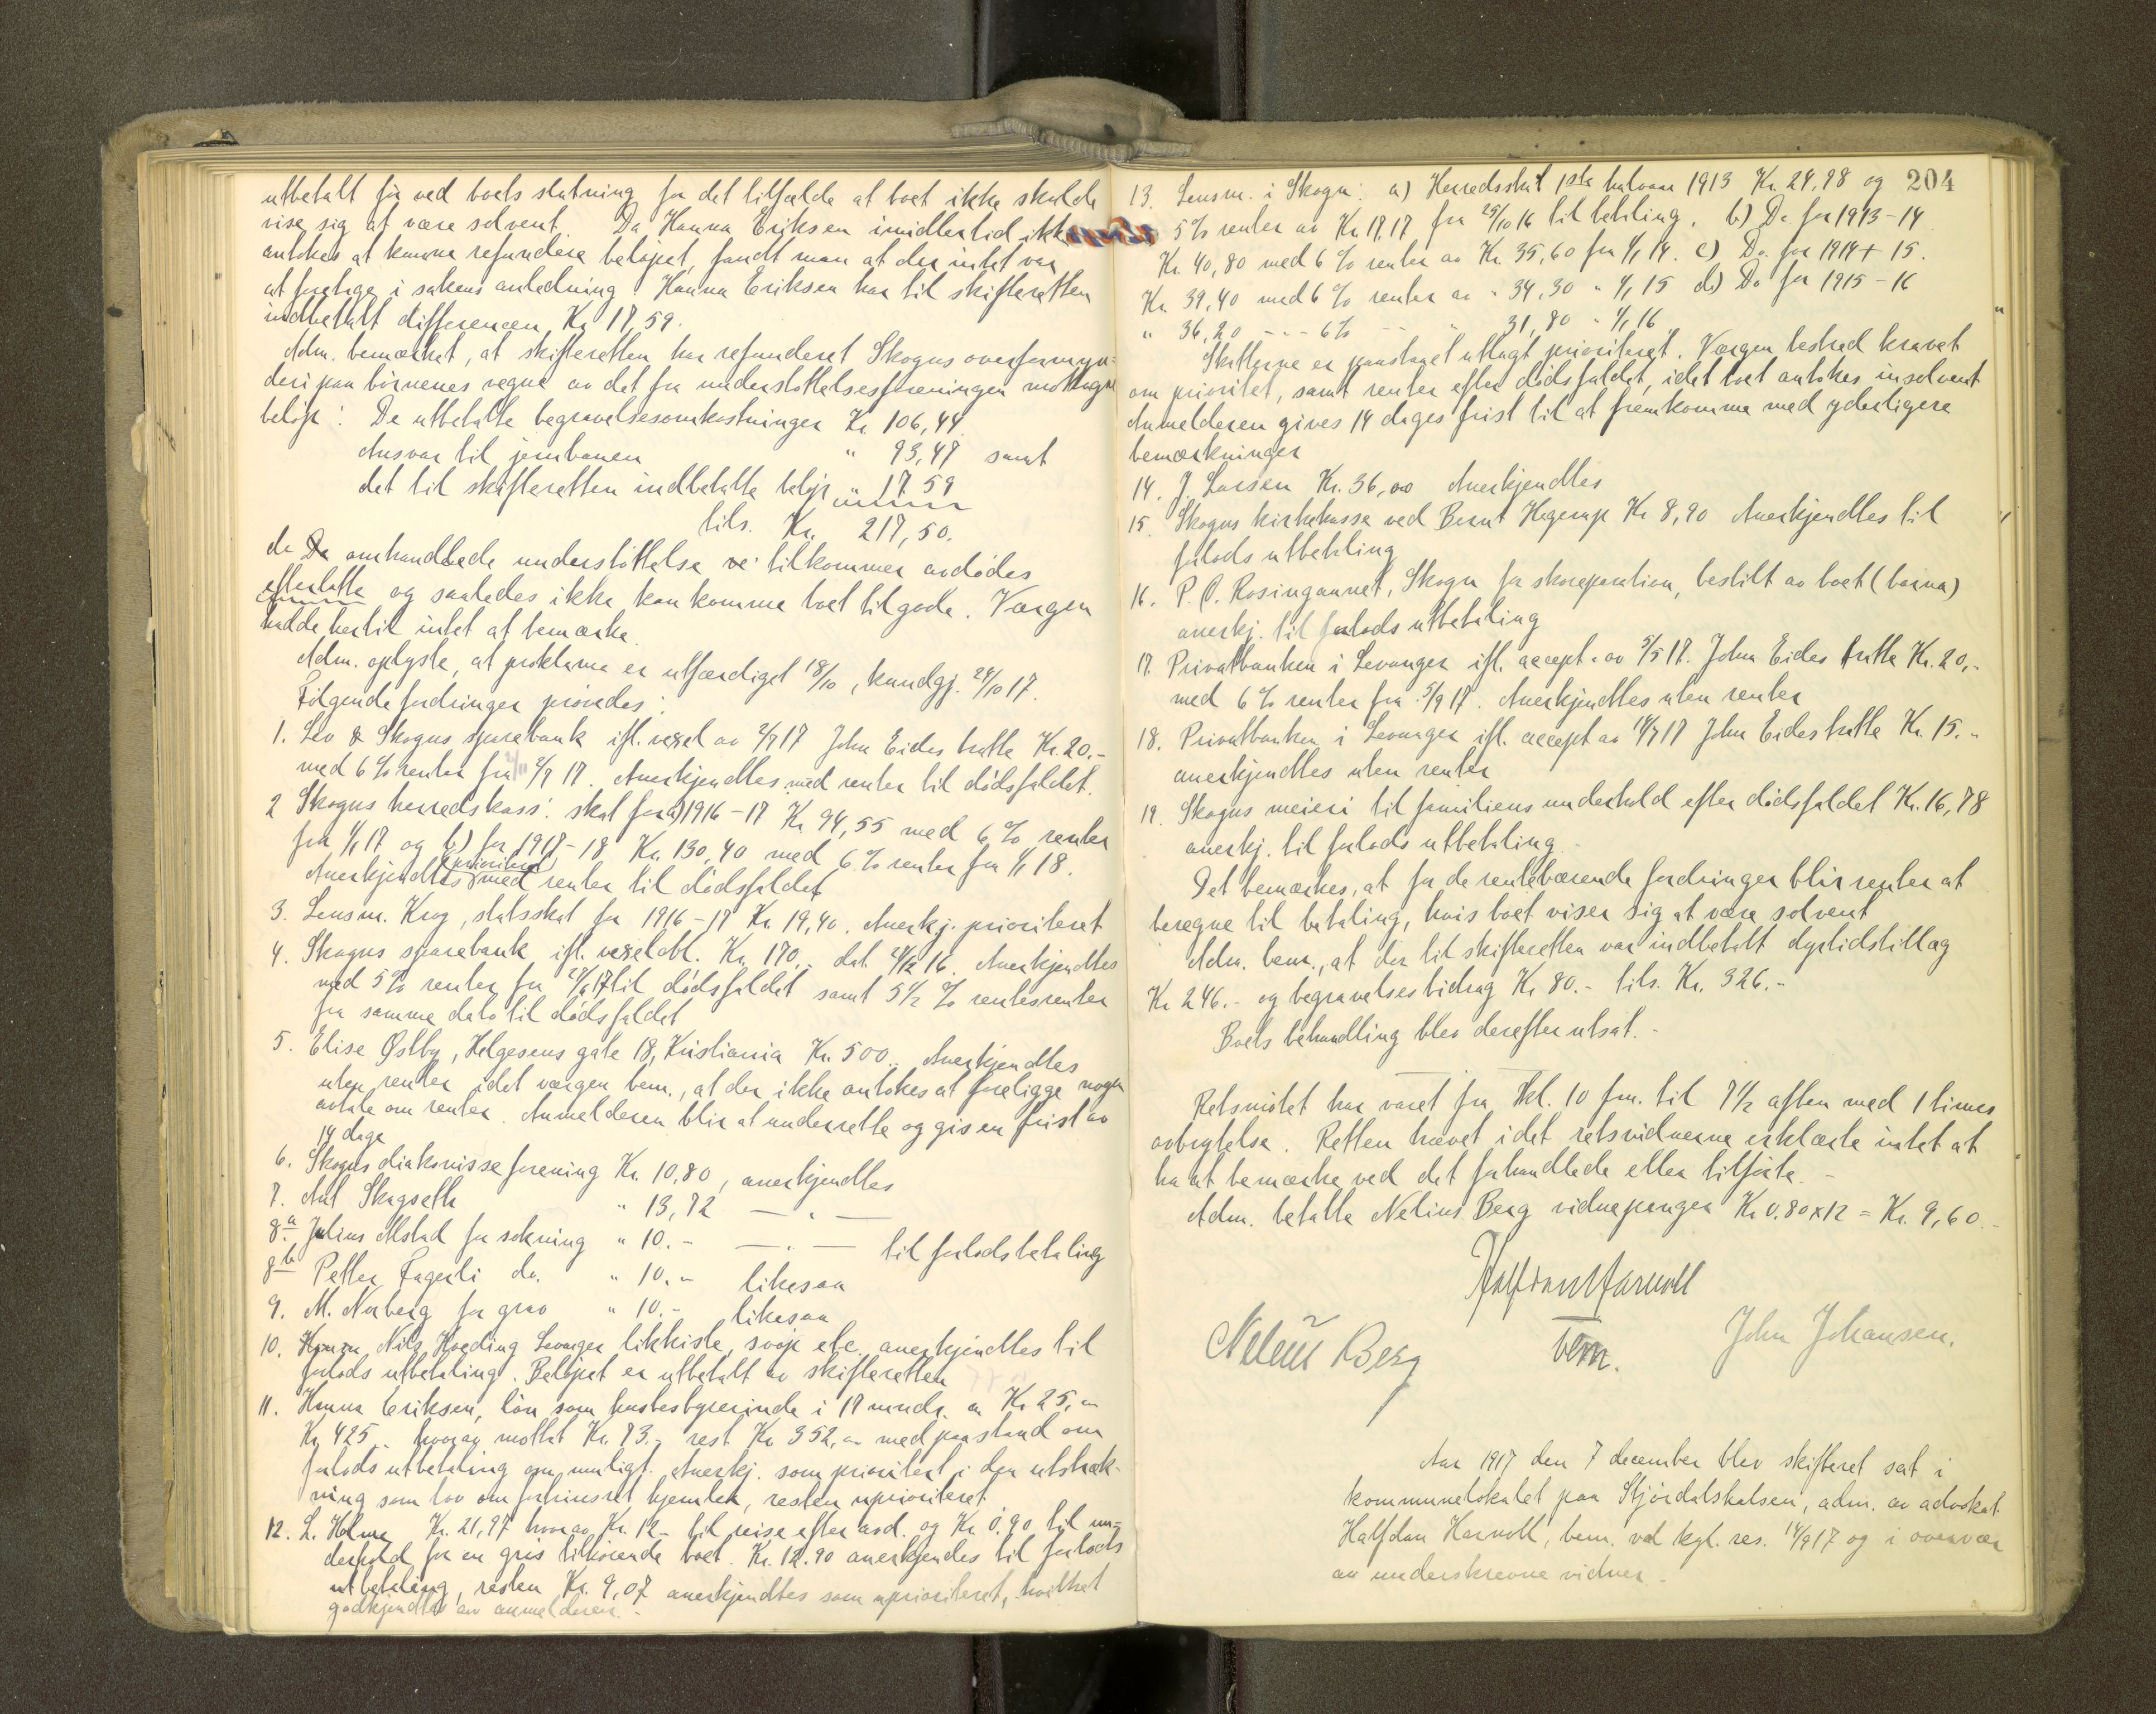 utbetalt før ved boets slutning for det tilfælde at boet ikke skulde
vise sig at være solvent. Da Hanna Eriksen imidlertid ikke
antokes at kunne refundere beløpet, fandt man at der intet var
at foretage i sakens anledning. Hanna Eriksen har til skifteretten
indbetalt differencen Kr 17,59.
Adm. bemærket, at skifteretten har refunderet Skogns overformyn-
deri paa børnenes vegne av det fra understøttelsesforeningen mottagne
beløp: De utbetalte begravelsesomkostninger Kr 106,44
Ansvar til jernbanen " 93,47 samt
det til skifteretten indbetalte beløp " 17 59
tils. Kr. 217,50.
da omhandlede understøttelse tilkommer avdødes
efterlatte og saaledes ikke kan komme boet tilgode. Værgen
hadde hertil intet at bemærke.
Adm. oplyste, at proklama er utfærdiget 18/10, kundgj. 24/10 17.
Følgende fordringer prøvedes:
1. Lev & Skogns sparebank ifl. vexel av 2/7 17 John Eides tratte Kr. 20.-
med 6 % renter fra 2/9 17. Anerkjendtes med renter til dødsfaldet.
2 Skogns herredskass: skat for a) 1916-17 Kr 94,55 med 6 % renter
fra 1/1 17 og b) for 1917-18 Kr. 130,40 med 6 % renter fra 1/1 18.
Anerkjendtes (prioritert) med renter til dødsfaldet
3. Lensm. Krog, statsskat for 1916-17 Kr. 19,40. Anerkj. prioriteret
4. Skogns sparebank ifl. vexelobl. Kr. 170.- dat. 24/12 16. Anerkjendtes
med 5 % renter fra 24/6 17 til dødsfaldet samt 5 1/2 % rentesrenter
fra samme dato til dødsfaldet
5. Elise Østby, Helgesens gate 18, Kristiania Kr. 500.- Anerkjendtes
uten renter idet værgen bem., at der ikke antokes at foreligge nogen
avtale om renter. Anmelderen blir at underrette og gis en frist av
14 dage
6. Skogns diakonisseforening Kr. 10,80, anerkjendtes
7. Ant Skagseth " 13,72 — " —
8a. Julius Alstad for sokning " 10.- — " — til forlods betaling
8b Petter Fagerli do. " 10.- likesaa
9. M. Norberg for grav " 10.- likesaa
10. Nils Hveding Levanger likkiste, svøp etc. anerkjendtes til
forlods utbetaling. Beløpet er utbetalt av skifteretten
11. Hanna Eriksen, løn som husbestyrerinde i 17 mndr. a Kr 25,-
Kr 425.- hvorav mottat Kr. 73.- rest Kr 352,- med paastand om
forlods utbetaling om muligt. Anerkj. som prioritert i den utstræk-
ning som lov om fortrinsret hjemler, resten uprioriteret
12. L. Holme Kr. 21,97 hvorav Kr. 12.- til reise efter avd. og Kr 0.90 til un-
derhold for en gris tilhørende boet. Kr. 12.90 anerkjendes til forlods
utbetaling, resten Kr. 9,07 anerkjendtes som uprioriteret, hvilket
godkjendtes av anmelderen.-
204
13. Lensm. i Skogn: a) Herredsskat 1ste halvaar 1913 Kr. 24,98 og
5 % renter av Kr 17,17 fra 25/10 16 til betaling. b) Do for 1913-14
Kr. 40,80 med 6 % renter av Kr. 35,60 fra 1/1 14. c) Do. for 1914 + 15.
Kr. 39,40 med 6 % renter av " 34,30 " 1/1 15 d) Do for 1915-16
" 36,20 - - - 6 % - - " 31,80 " 1/1 16
Skatterne er paastaaet utlagt prioriteret. Værgen bestred kravet
om prioritet, samt renter efter dødsfaldet, idet boet antokes insolvent
Anmelderen gives 14 dages frist til at fremkomme med yderligere
bemærkninger
14. J. Larsen Kr. 36,00 Anerkjendtes
15. Skogns kirkekasse ved Bernt Hegerup Kr 8,20 Anerkjendtes til
forlods utbetaling
16. P. O. Rosingaunet, Skogn for skoreparation, bestilt av boet (barna)
anerkj. til forlods utbetaling
17. Privatbanken i Levanger ifl. accept av 5/5 17. John Eides tratte Kr. 20,-
med 6 % renter fra 5/9 17. Anerkjendtes uten renter
18. Privatbanken i Levanger ifl. accept av 14/7 17 John Eides tratte Kr. 15.-
anerkjendtes uten renter
19. Skogns meieri til familiens underhold efter dødsfaldet Kr. 16,78
anerkj. til forlods utbetaling.
Det bemærkes, at for de rentebærende fordringer blir renter at
beregne til betaling, hvis boet viser sig at være solvent
Adm. bem., at der til skifteretten var indbetalt dyrtidstillæg
Kr 246.- og begravelsesbidrag Kr 80.- tils. Kr. 326.-
Boets behandling blev derefter utsat.-
Retsmøtet har varet fra Kl. 10 fm. til 7 1/2 aften med 1 times
avbrytelse. Retten hævet idet retsvidnerne erklærte intet at
ha at bemærke ved det forhandlede eller tilførte.-
Adm. betalte Nelius Berg vidnepenger Kr 0.80 x 12 = Kr. 9,60.-
Halfdan Harnoll
bem.
Nelius Berg
John Johansen.
Aar 1917 den 7 december blev skifteret sat i
kommunelokalet paa Stjørdalshalsen, adm. av advokat
Halfdan Harnoll, bem. ved kgl. res. 14/9 17 og i overvær
av underskrevne vidner.-